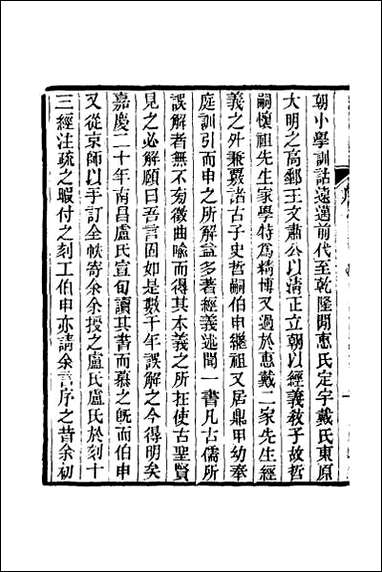 朝小學訓詁遠邁前代至乾隆閒惠氏定宇戴氏東原
大明之高郵王文肅公以清正立朝以經義敎子故哲
嗣懷祖先生家學特爲精博又過於惠戴二家先生經
義之外兼覈諸古子史哲嗣伯申繼祖又居鼎甲幼奉
庭訓引而申之所解益多著經義述聞一書凡古儒所
誤解者無不旁徵曲喻而得其本義之所在使古聖賢
見之必解頤曰吾言固如是數千年誤解之今得明矣
嘉慶二十年南昌盧氏宣旬讀其書而慕之旣而伯申
又從京師以手訂全帙寄余余授之盧氏盧氏於刻十
三經注疏之暇付之刻工伯申亦請余言序之昔余初